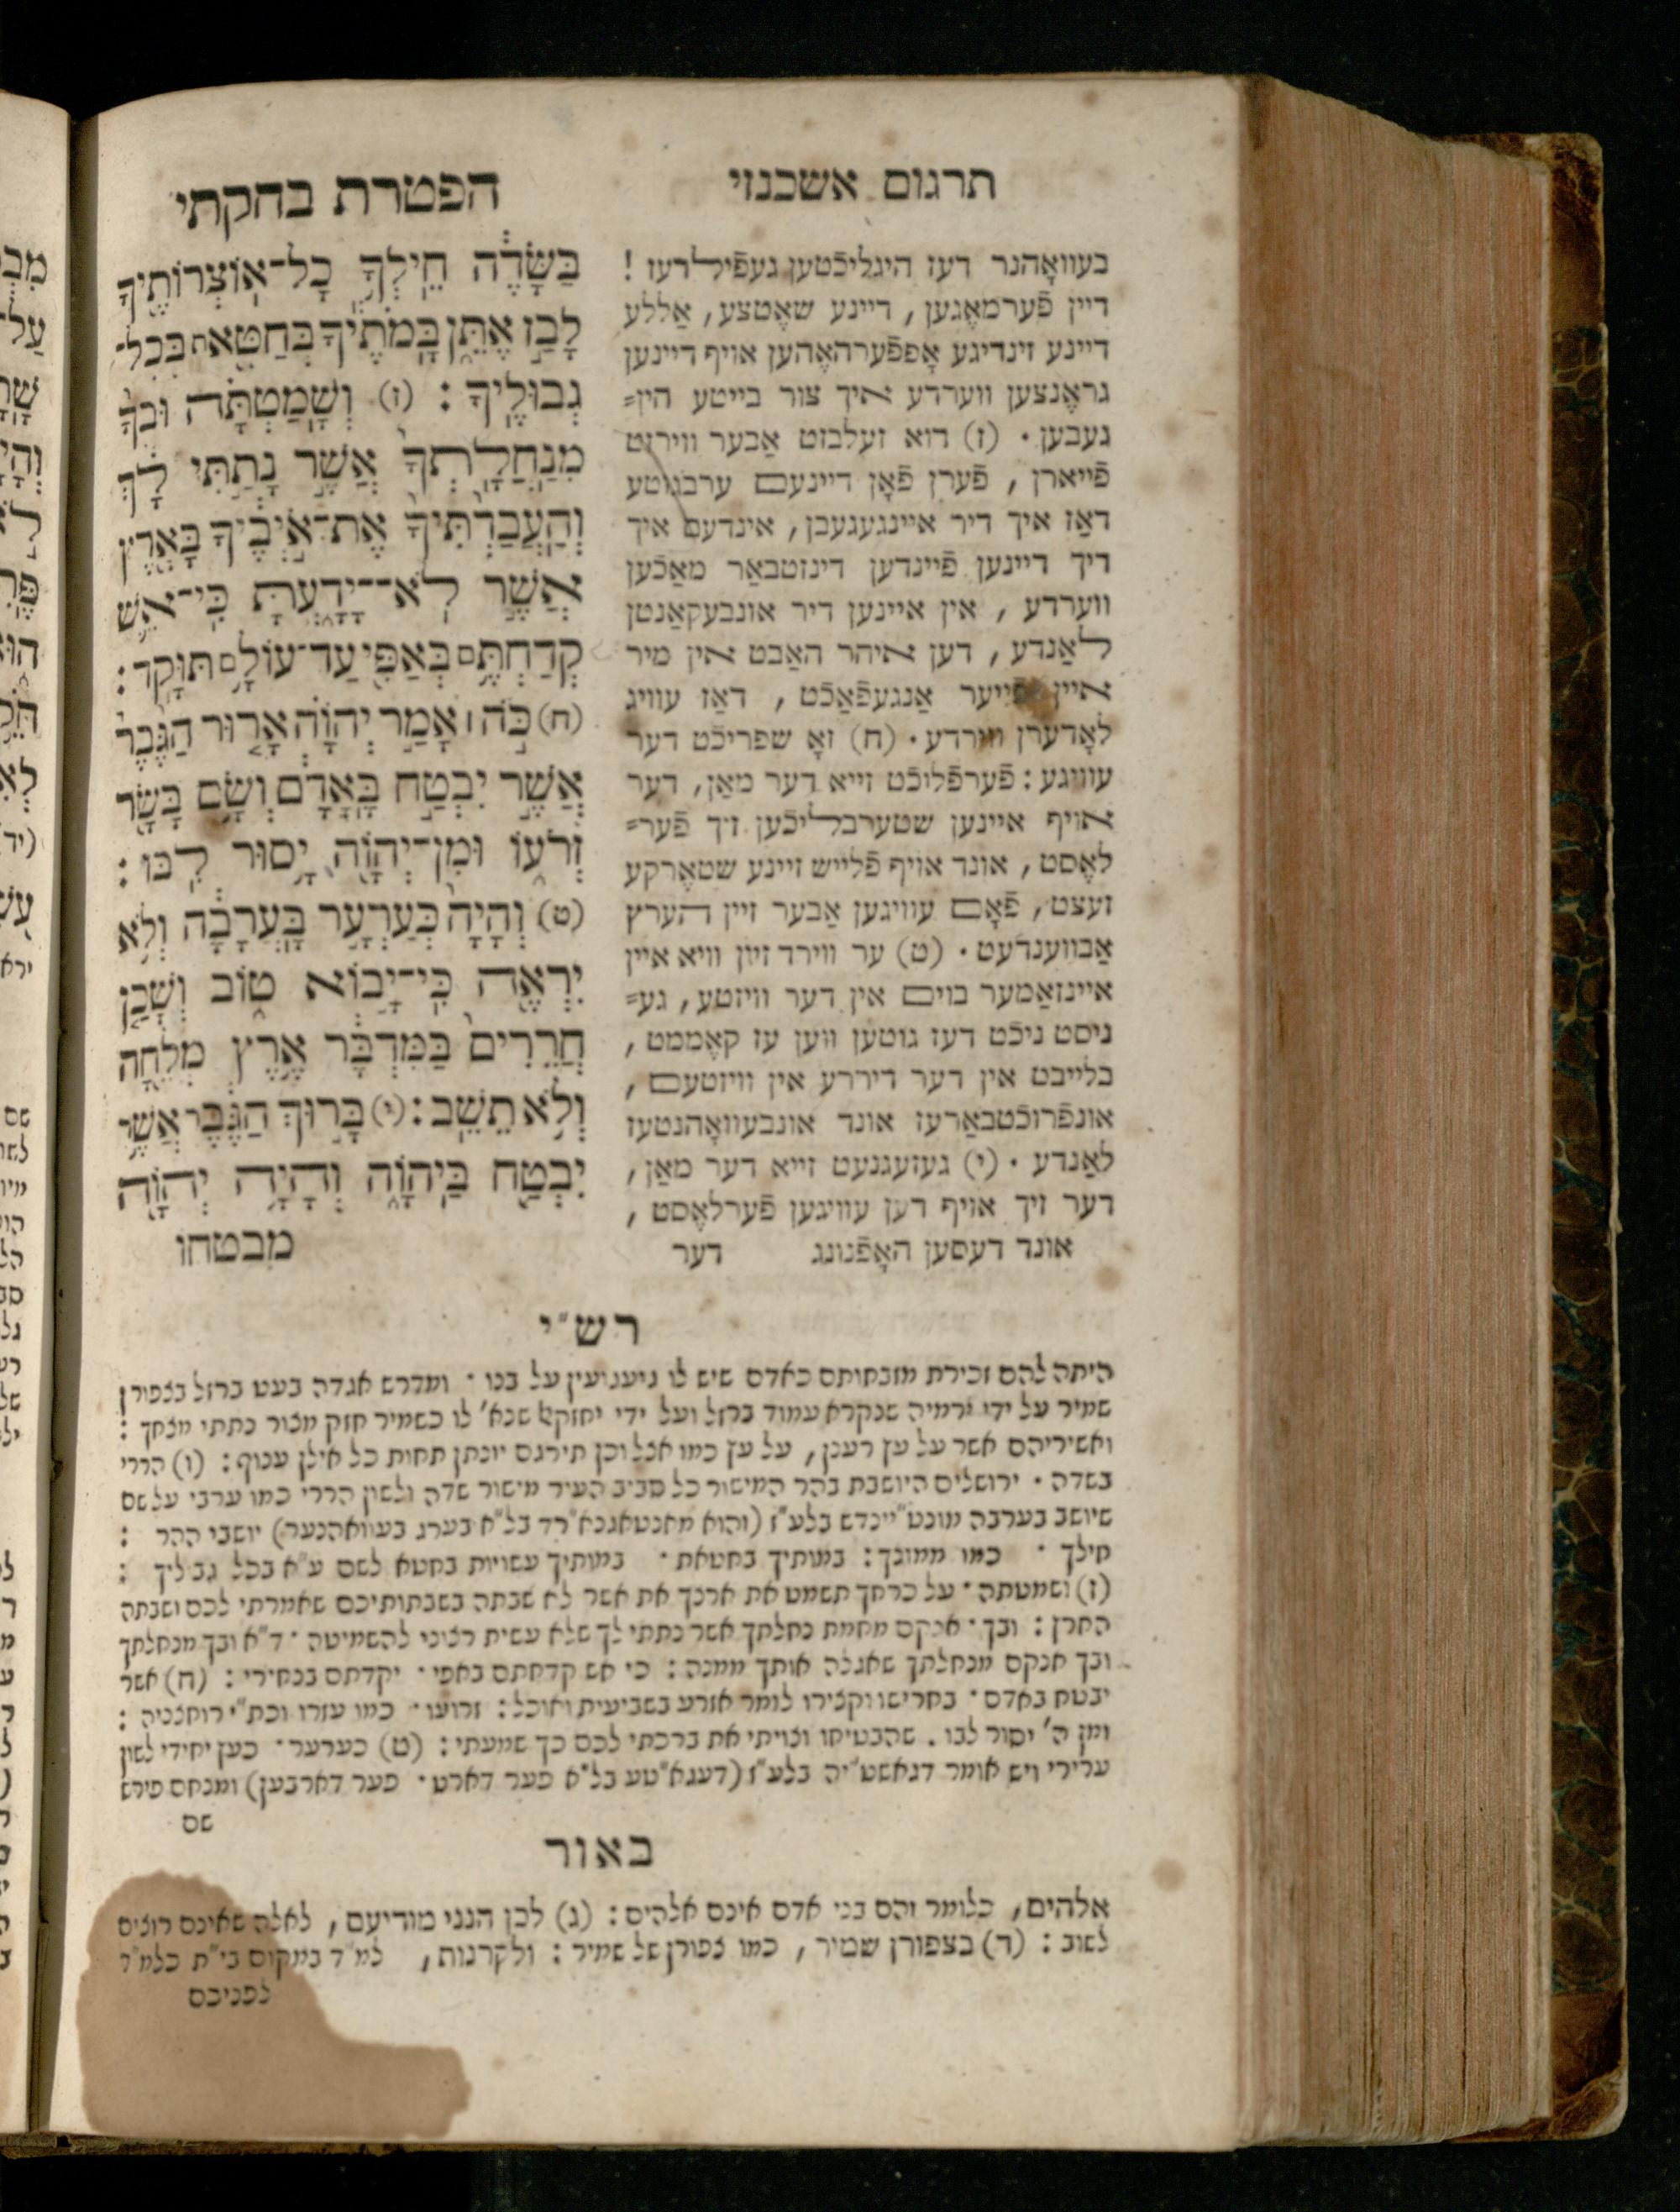 תרגום אשכנזי
הפטרת בחקתי
בעוואָהנר דעז היגליכֿטען געפֿילדעז !
דיין פֿערמאֶגען , דיינע שאֶטצע , אַללע
דיינע זינדיגע אָפפֿערהאֶהען אויף דיינען
גראֶנצען ווערדע איך צור בייטע הין=
געבען . (ז) דוא זעלבזט אַבער ווירזט
פֿייארן , פֿערן פֿאָן דיינעם ערבגוטע
דאַז איך דיר איינגעגעבן , אינדעם איך
דיך דיינען פֿיינדען דינזטבאַר מאַכֿען
ווערדע , אין איינען דיר אונבעקאַנטן
לאַנדע , דען איהר האַבט אין מיר
איין פֿייער אַנגעפֿאַכֿט , דאַז עוויג
לאָדערן ווערדע . (ח) זאָ שפריכֿט דער
עוויגע : פֿערפֿלוכֿט זייא דער מאַן , דער
אויף איינען שטערבליכֿען זיך פֿער=
לאֶסט , אונד אויף פֿלייש זיינע שטאֶרקע
זעצט , פֿאָם עוויגען אַבער זיין הערץ
אַבווענדעט . (ט) ער ווירד זיין וויא איין
איינזאַמער בוים אין דער וויזטע , גע=
ניסט ניכֿט דעז גוטען ווען עז קאָממט ,
בלייבט אין דער דיררע אין וויזטעם ,
אונפֿרוכֿטבאַרעז אונד אונבעוואָהנטעז
לאַנדע . (י) געזעגנעט זייא דער מאַן ,
דער זיך אויף דען עוויגען פֿערלאֶסט ,
אונד דעסען האָפֿנונג דער
בַּשָּׂדֶ֔ה חֵֽילְךָ֥ כָל־אֽוֹצְרוֹתֶ֖יךָ
לָבַ֣ז אֶתֵּ֑ן בָּֽמֹתֶ֕יךָ בְּחַטָּ֖את בְּכׇל־
גְּבוּלֶֽיךָ : (ז) וְשָׁמַטְתָּ֗ה וּבְךָ֙
מִנַּֽחֲלָֽתְךָ֙ אֲשֶׁ֣ר נָתַ֣תִּי לָ֔ךְ
וְהַֽעֲבַדְתִּ֨יךָ֙ אֶת־אֹ֣יְבֶ֔יךָ בָּאָ֖רֶץ
אֲשֶׁ֣ר לֹֽא־יָדָ֑עְתָּ כִּֽי־אֵ֛שׁ
קְדַחְתֶּ֥ם בְּאַפִּ֖י עַד־עוֹלָ֥ם תּוּקָֽד :
(ח) כֹּ֣ה ׀ אָמַ֣ר יְהוָֹ֗ה אָר֤וּר הַגֶּ֙בֶר֙
אֲשֶׁ֣ר יִבְטַ֣ח בָּֽאָדָ֔ם וְשָׂ֥ם בָּשָׂ֖ר
זְרֹע֑וֹ וּמִן־יְהוָֹ֖ה יָס֥וּר לִבּֽוֹ :
(ט) וְהָיָה֙ כְּעַרְעָ֣ר בָּֽעֲרָבָ֔ה וְלֹ֥א
יִרְאֶ֖ה כִּי־יָ֣בוֹא ט֑וֹב וְשָׁכַ֤ן
חֲרֵרִים֙ בַּמִּדְבָּ֔ר אֶ֥רֶץ מְלֵחָ֖ה
וְלֹ֥א תֵשֵֽׁב : (י) בָּר֣וּךְ הַגֶּ֔בֶר אֲשֶׁ֥ר
יִבְטַ֖ח בַּֽיהוָֹ֑ה וְהָיָ֥ה יְהוָֹ֖ה
מבטחו
רש״י
היתה להם זכירת מזבחותם כאדם שיש לו גיעגועין על בנו . ומדרש אגדה בעט ברזל בצפורן
שמיר על ידי ירמיה שנקרא עמוד ברזל ועל ידי יחזקאל שנא׳ לו כשמיר חזק מצור נתתי מצחך :
ואשיריהם אשר על עץ רענן , על עץ כמו אצל וכן תירגם יונתן תחות כל אילן עבוף : (ו) הררי
בשדה . ירושלים היושבת בהר המישור כל סביב העיר מישור שדה ולשון הררי כמו ערבי על שם
שיושב בערבה מונט״ייגדש בלע״ז (והוא מאנטאגנא״רד בל״א בערג בעוואהנער) יושבי ההר :
חילך . כמו ממונך : במותיך בחטאת . במותיך עשויות בחטא לשם ע״א בכל גבוליך :
(ז) ושמטתה . על כרחך תשמט את ארצך את אשר לא שבתה בשבתותיכם שאמרתי לכם ושבתה
הארץ : ובך . אנקם מחמת נחלתך אשר נתתי לך שלא עשית רצוני להשמיטה . ד״א ובך מנחלתך
ובך אנקם מנחלתך שאגלה אותך ממנה : כי אש קדחתם באפי . יקדתם בנחירי : (ח) אשר
יבטח באדם . בחרישו וקצירו לומר אזרע בשביעית ואוכל : זרועו . כמו עזרו וכת״י רוחצניה :
ומן ה׳ יסור לבו . שהבטיחו וצויתי את ברכתי לכם כך שמעתי : (ט) כערער . כעץ יחידי לשון
ערירי ויש אומר דגאשט״יה בלע״ז (דעגא״טע בל״א פער דארט . פער דארבען) ומנחם פירש
שם
באור
אלהים , כלומר והם בני אדם אינם אלהים : (ג) לכן הנני מודיעם , לאלה שאינם רוצים
לשוב : (ד) בצפורן שמיר , כמו צפורן של שמיר : ולקרנות , למ״ד במקום בי״ת כלמ״ד
לפניכם